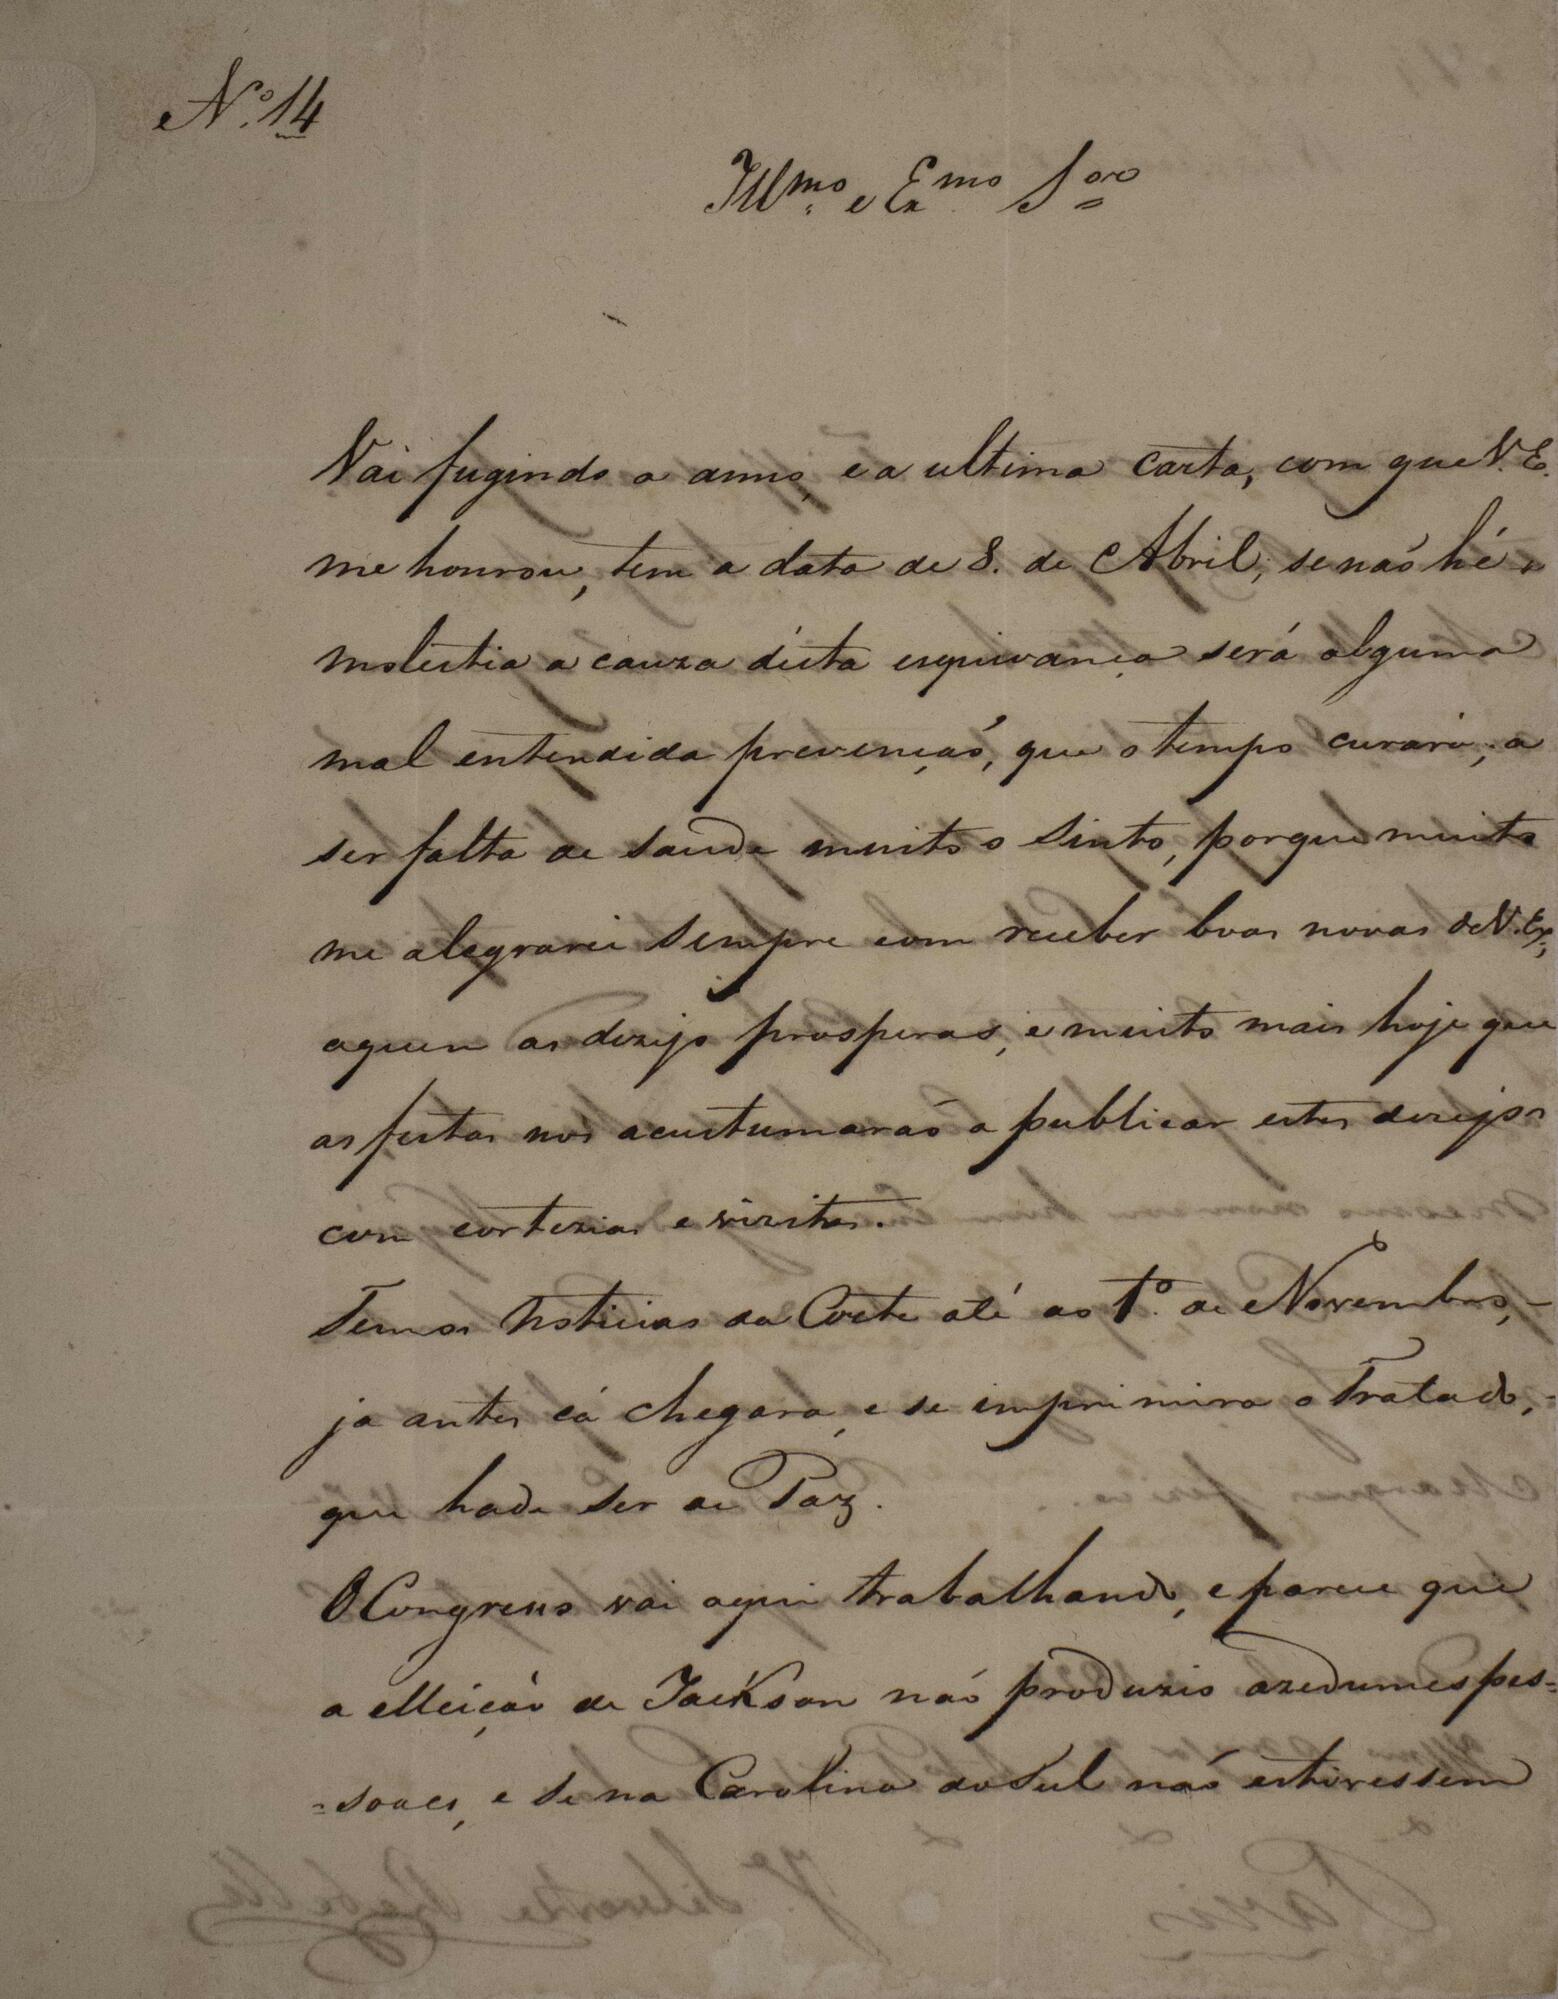 N.º 14
Illmo. e Exmo. Sor.
Vai fugindo o anno, e a ultima carta, com que V. E.
me honrou, tem a data de 8. de Abril; se naõ hé
molestia a cauza désta esquivança será alguma
mal entendida prevençaõ, que o tempo curará; a
ser falta de saude muito o sinto, porque muito
me alegrarei sempre com receber boas novas de V. Ex.,
aquem as dezejo prosperas, e muito mais hoje que
as festas nos acustumaraõ a publicar estes dezejos
com cortezias e vizitas.
Temos noticias da Corte até ao 1º. de Novembro, –
ja antes cá chegara, e se imprimira o Tratado, =
que hade ser de Paz.
O Congresso vai aqui trabalhando, e parece que
a elleiçaõ de Jackson naõ produzio azedumes pes=
=soaes, e se na Carolina do Sul naõ estivessem